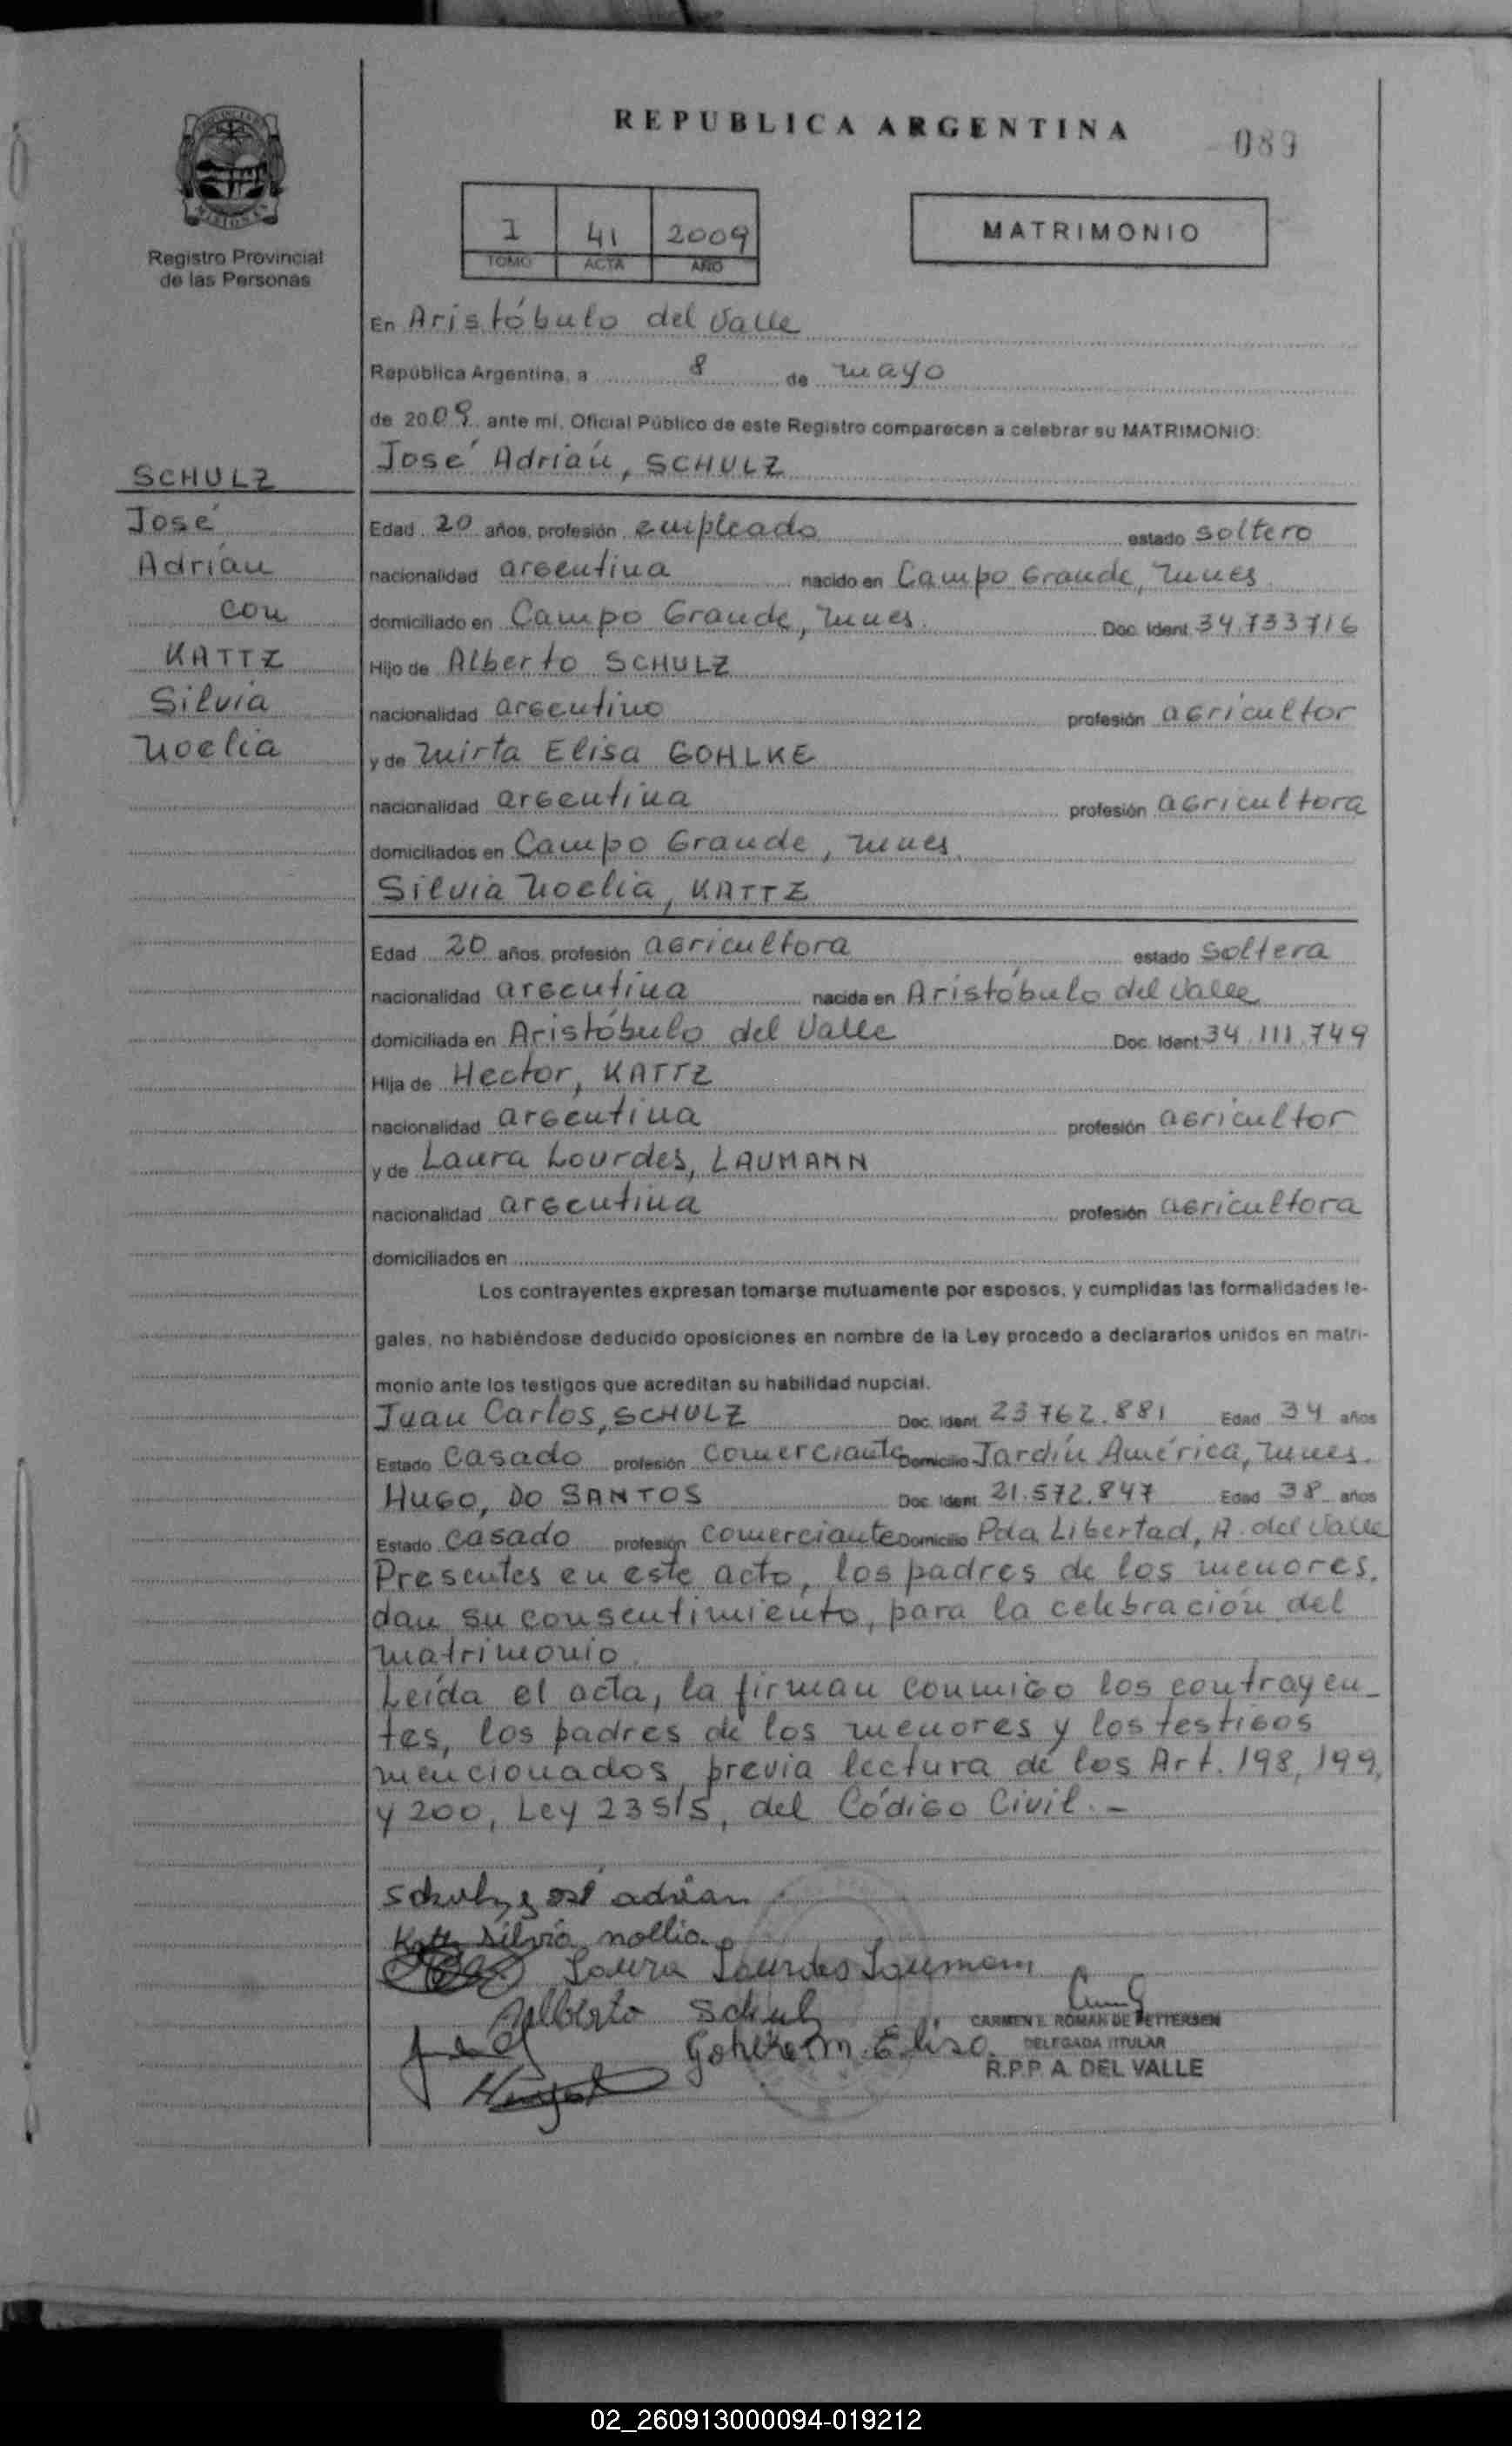 REPUBLICA ARGENTINA
089
I 41 2009
TOMO ACTA AÑO
MATRIMONIO
Registro Provincial
de las Personas
En Aristóbulo del Valle
República Argentina, a 8 de mayo
de 2009 ante mí, Oficial Público de este Registro comparecen a celebrar su MATRIMONIO:
José Adrián, SCHULZ
SCHULZ
José
Adrián
con
KATTZ
Silvia
Noelia
Edad 20 años, profesión empleado estado soltero
nacionalidad argentina nacido en Campo Grande, Mnes
domiciliado en Campo Grande, Mnes. Doc. Ident. 34.733716
Hijo de Alberto SCHULZ
nacionalidad argentino profesión agricultor
y de Mirta Elisa GOHLKE
nacionalidad argentina profesión agricultora
domiciliados en Campo Grande, Mnes.
Silvia Noelia, KATTZ
Edad 20 años, profesión agricultora estado soltera
nacionalidad argentina nacida en Aristóbulo del Valle
domiciliada en Aristóbulo del Valle Doc. Ident. 34.111.749
Hija de Hector, KATTZ
nacionalidad argentina profesión agricultor
y de Laura Lourdes, LAUMANN
nacionalidad argentina profesión agricultora
domiciliados en
Los contrayentes expresan tomarse mutuamente por esposos, y cumplidas las formalidades le-
gales, no habiéndose deducido oposiciones en nombre de la Ley procedo a declararlos unidos en matri-
monio ante los testigos que acreditan su habilidad nupcial.
Juan Carlos, SCHULZ Doc. Ident. 23762.881 Edad 34 años
Estado casado profesión comerciante Domicilio Jardín América, Mnes.
HUGO, DO SANTOS Doc. Ident. 21.572.847 Edad 38 años
Estado casado profesión comerciante Domicilio Pda Libertad, A. del Valle
Presentes en este acto, los padres de los menores,
dan su consentimiento, para la celebración del
matrimonio.
Leída el acta, la firman conmigo los contrayen-
tes, los padres de los menores y los testigos
mencionados, previa lectura de los Art. 198, 199,
y 200, Ley 23515, del Código Civil.-
Schulz José adrian
Kattz Silvia nollia
Laura Lourdes Laumann
Alberto Schulz
Gohlke M. Elisa
CARMEN E. ROMAN DE PETTERSEN
DELEGADA TITULAR
R.P.P. A. DEL VALLE
02_260913000094-019212